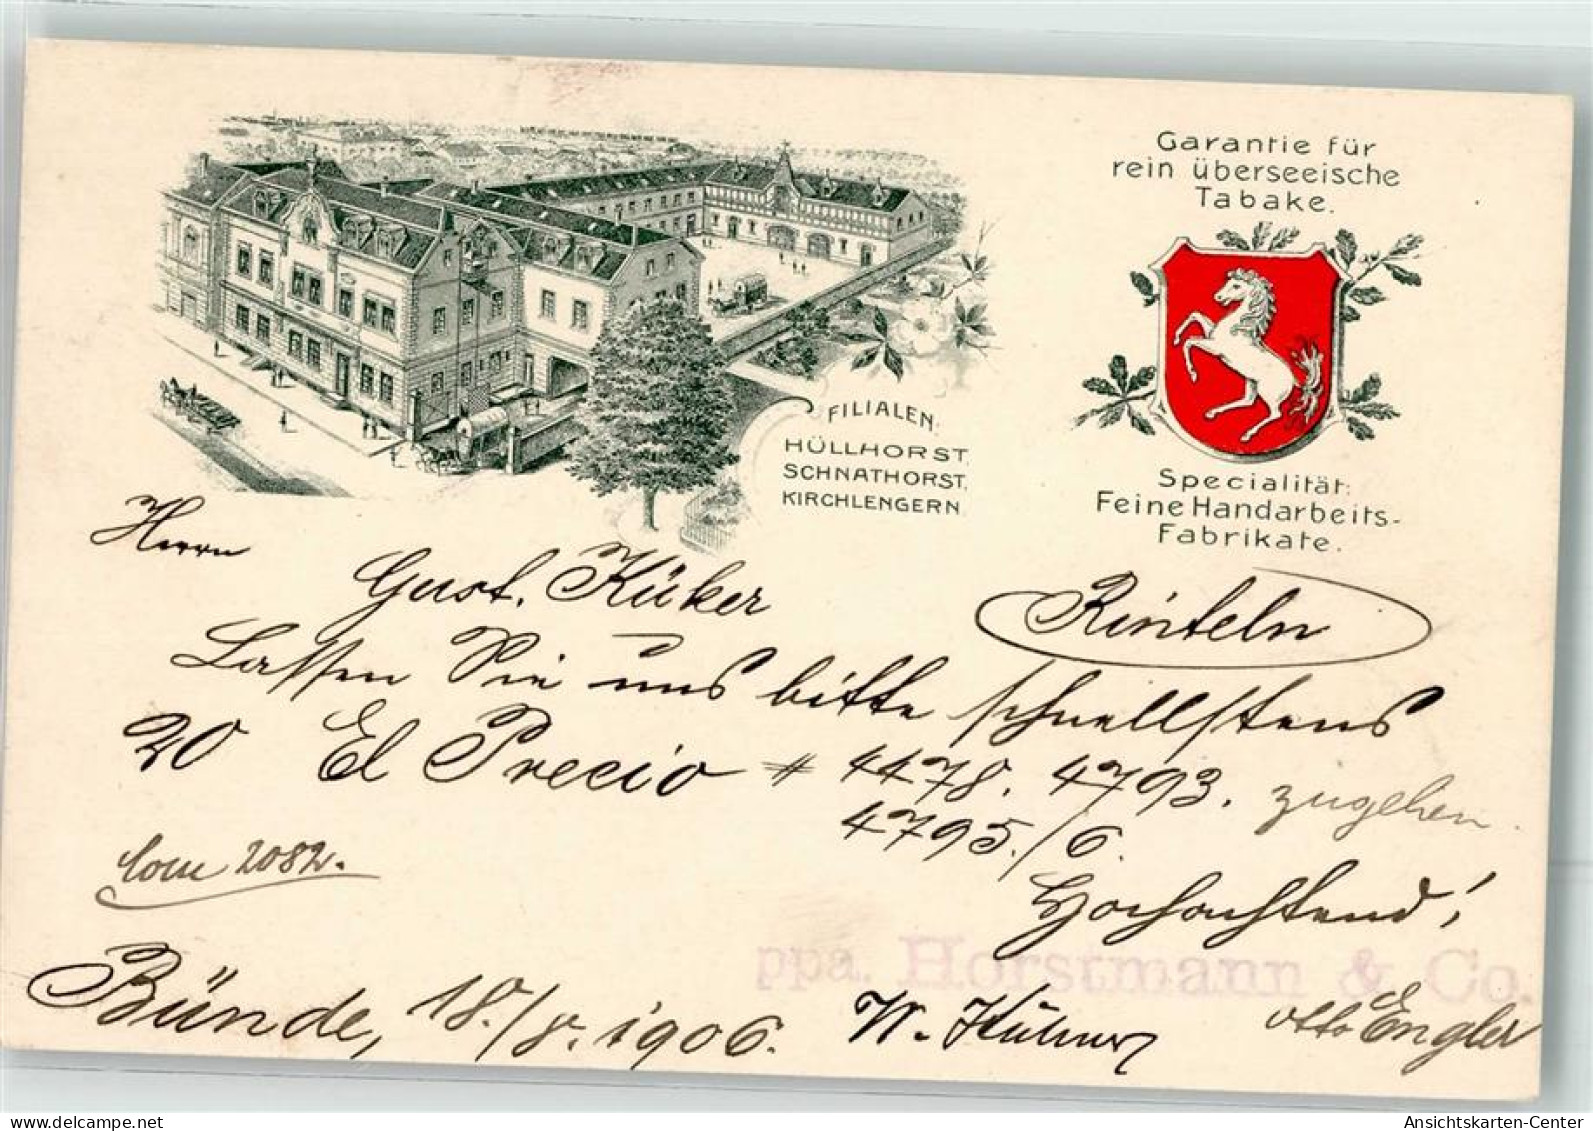 Garantie für
rein überseeische
Tabake.
FILIALEN.
HÜLLHORST,
SCHNATHORST,
KIRCHLENGERN.
Specialität:
Feine Handarbeits-
Fabrikate.
Herrn
Gust. Küker Rinteln
Lassen Sie uns bitte schnellstens
20 El Precio # 4478. 4793. zugehen.
4795./6.
2082.
Hochachtend!
ppa. Horstmann & Co.
Bünde, 18./8. 1906. W. Otto Engler
oldthing.de
Ansichtskarten-Center